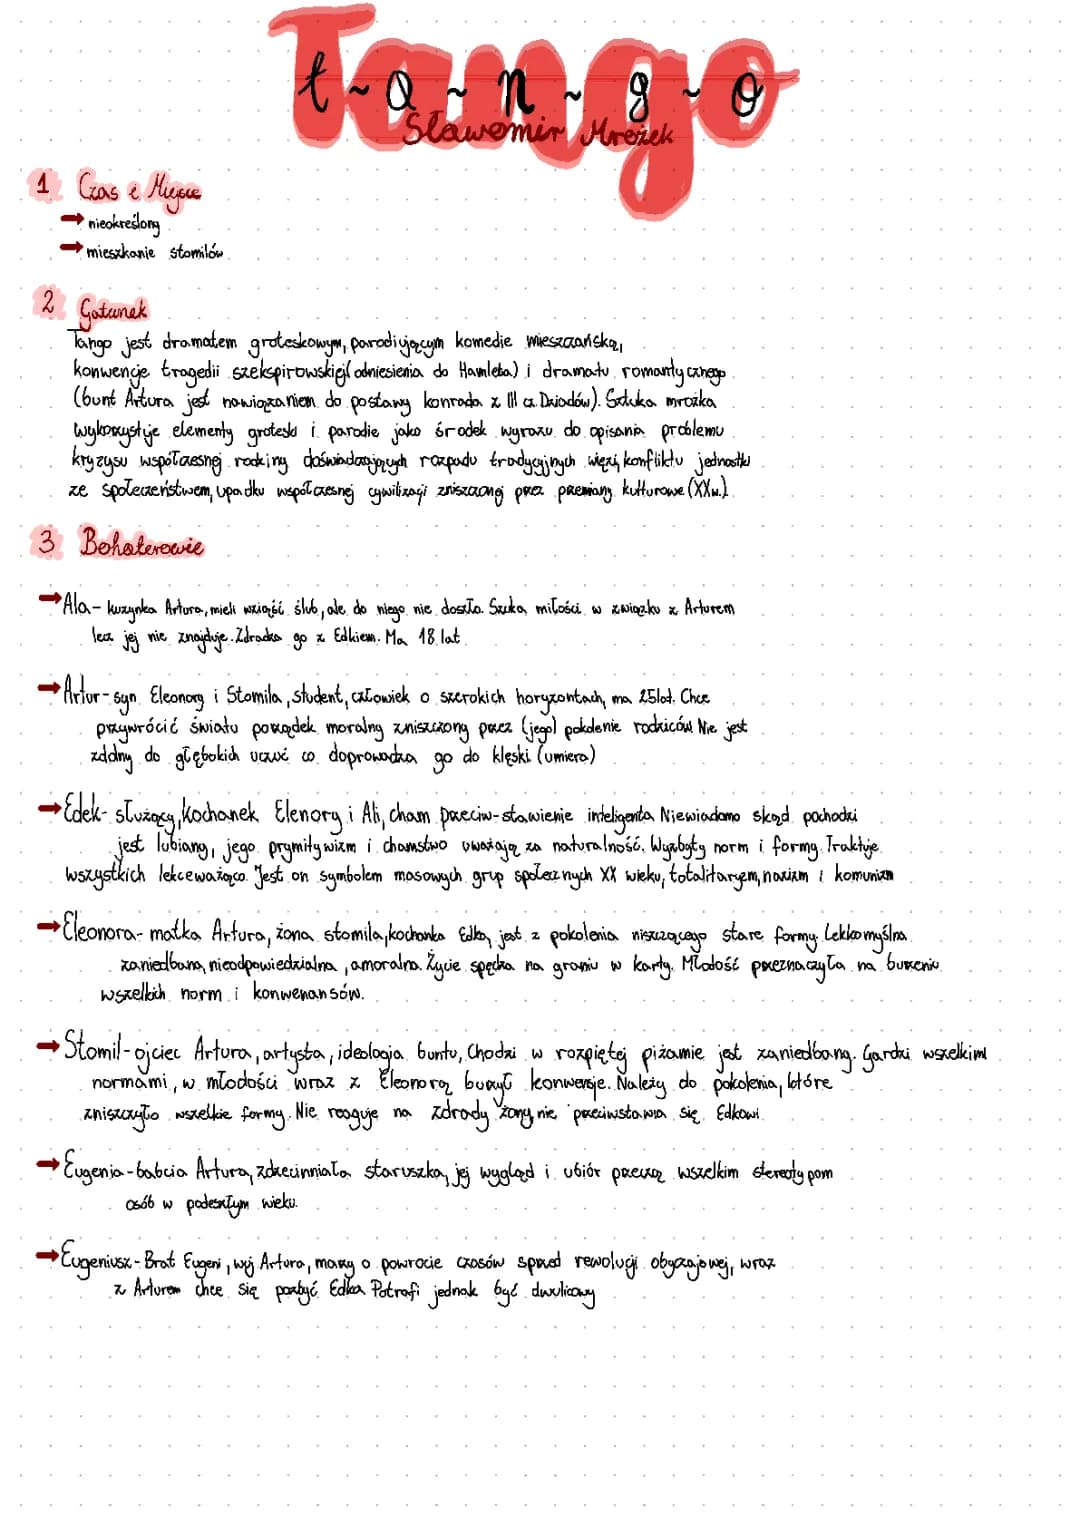 Tango
t~a~n~g~o
Sławomir Mrożek
1 Czas i Miejsce
→ nieokreślony
→ mieszkanie stomilów
2 Gatunek
Tango jest dramatem groteskowym, parodiującym komedie mieszczańską,
konwencje tragedii szekspirowskiej (odniesienia do Hamleta) i dramatu romantycznego
(bunt Artura jest nawiązaniem do postawy konrada z III cz. Dziadów). Sztuka mrożka
wykorzystuje elementy groteski i parodie jako środek wyrazu do opisania problemu
kryzysu współczesnej rodziny doświadczających rozpadu tradycyjnych więzi, konfliktu jednostki
ze społeczeństwem, upadku współczesnej cywilizacji zniszczonej przez przemiany kulturowe (XXw.)
3 Bohaterowie
→ Ala - kuzynka Artura, mieli wziąść ślub, ale do niego nie doszło. Szuka miłości w związku z Arturem
lecz jej nie znajduje. Zdradza go z Edkiem. Ma 18 lat
→ Artur - syn Eleonory i Stomila, student, człowiek o szerokich horyzontach, ma 25lat. Chce
przywrócić światu porządek moralny zniszczony przez (jego) pokolenie rodziców Nie jest
zdolny do głębokich uczuć co doprowadza go do klęski (umiera)
→ Edek - służący, kochanek Elenory i Ali, cham przeciw-stawienie inteligenta Niewiadomo skąd pochodzi
jest lubiany, jego prymitywizm i chamstwo uważają za naturalność. Wyzbyty norm i formy. Traktuje
wszystkich lekceważąco. Jest on symbolem masowych grup społecznych XX wieku, totalitaryzm, nazizm i komunizm
→ Eleonora - matka Artura, żona stomila, kochanka Edka, jest z pokolenia niszczącego stare formy. Lekkomyślna
zaniedbana, nieodpowiedzialna, amoralna. Życie spędza na graniu w karty. Młodość przeznaczyła na burzeniu
wszelkich norm i konwenansów.
→ Stomil - ojciec Artura, artysta, ideologia buntu, Chodzi w rozpiętej piżamie jest zaniedbany. Gardzi wszelkimi
normami, w młodości wraz z Eleonorą burzył konwencje. Należy do pokolenia, które
zniszczyło wszelkie formy. Nie reaguje na zdrady żony, nie przeciwstawia się Edkowi.
→ Eugenia - babcia Artura, zdziecinniała staruszka, jej wygląd i ubiór przeczą wszelkim stereotypom
osób w podeszłym wieku.
→ Eugeniusz - Brat Eugeni, wuj Artura, marzy o powrocie czasów sprzed rewolucji obyczajowej, wraz
z Arturem chce się pozbyć Edka Potrafi jednak być dwulicowy